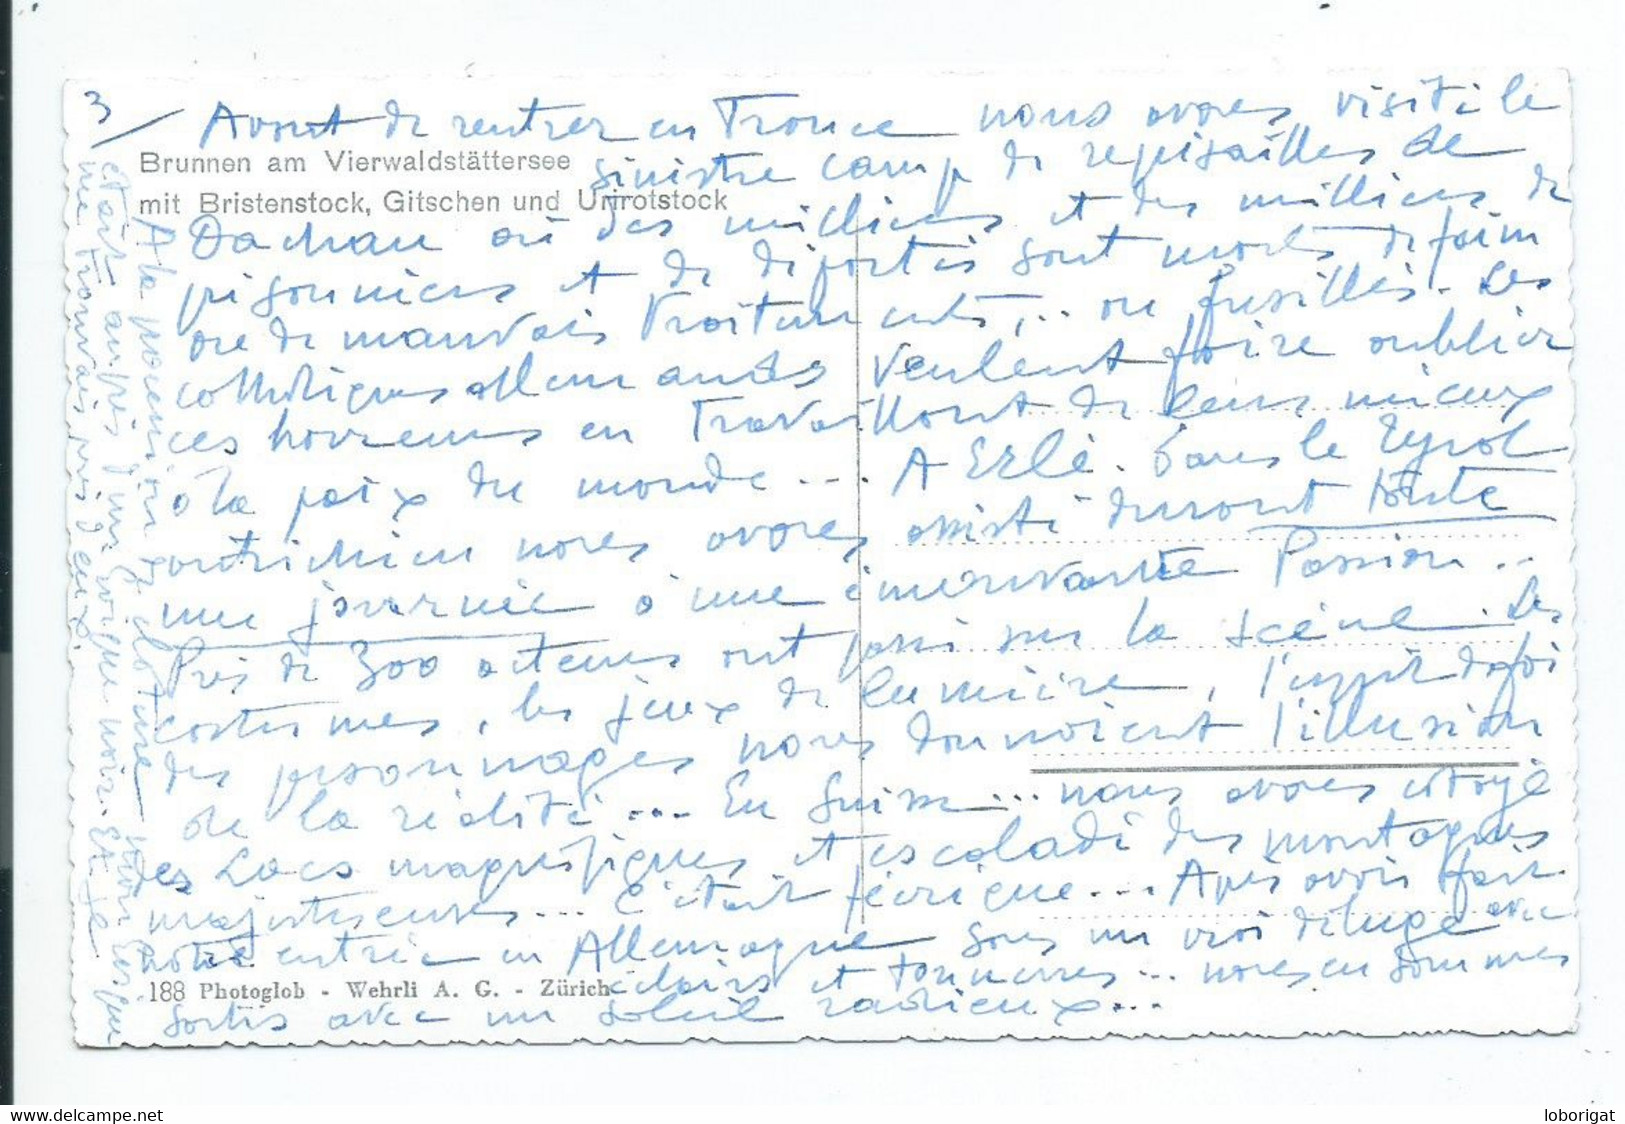 3/ Avant de rentrer en France nous avons visité le
Brunnen am Vierwaldstättersee
mit Bristenstock, Gitschen und Urirotstock
sinistre camp de represailles de
Dachau où des milliers et des milliers de
prisonniers et de déportés sont morts de faim
ou de mauvais traitements,.. ou fusillés. Les
catholiques allemands veulent faire oublier
ces horreurs en travaillant de leurs mieux
à la paix du monde... A Erlé. Dans le Tyrol
autrichien nous avons assisté durant toute
une journée à une émouvante Passion..
Près de 300 acteurs ont passé sur la scène. Les
costumes, les jeux de lumière, l'esprit de foi
des personnages nous donnoient l'illusion
de la réalité... En Suisse... nous avons cotoyé
des Lacs magnifiques et escaladé des montagnes
majestueuses... C'était féerique... Après avoir fait
notre entrée en Allemagne sous un vrai déluge avec
éclairs et tonnerres... nous en sommes
sortis avec un soleil radieux...
188 Photoglob - Wehrli A. G. - Zürich
A la procession de clôture mon Evêque
était auprès d'un Evêque noir. Et je
me trouvais près d'eux.
www.delcampe.net
loborigat